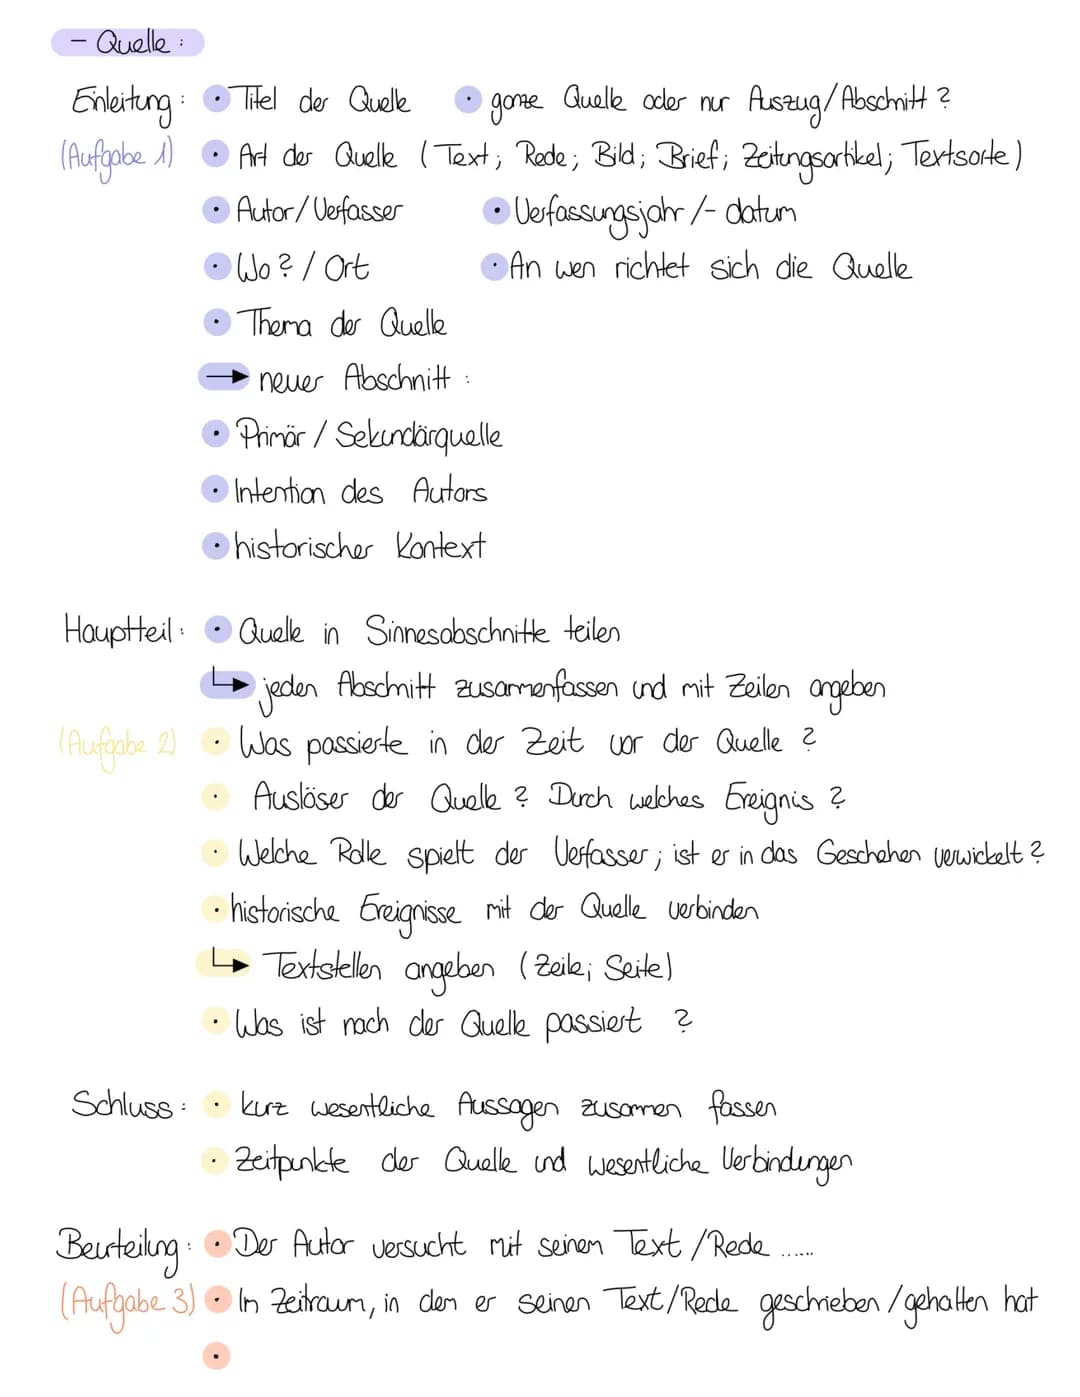 - Quelle :
Einleitung : • Titel der Quelle • ganze Quelle oder nur Auszug/Abschnitt ?
(Aufgabe 1) • Art der Quelle ( Text ; Rede ; Bild ; Brief ; Zeitungsartikel ; Textsorte )
• Autor/Verfasser • Verfassungsjahr /- datum
• Wo ? / Ort • An wen richtet sich die Quelle
• Thema der Quelle
→ neuer Abschnitt :
• Primär / Sekundärquelle
• Intention des Autors
• historischer Kontext
Hauptteil : • Quelle in Sinnesabschnitte teilen
↳ jeden Abschnitt zusammenfassen und mit Zeilen angeben
(Aufgabe 2) • Was passierte in der Zeit vor der Quelle ?
• Auslöser der Quelle ? Durch welches Ereignis ?
• Welche Rolle spielt der Verfasser ; ist er in das Geschehen verwickelt ?
• historische Ereignisse mit der Quelle verbinden
↳ Textstellen angeben ( Zeile ; Seite )
• Was ist nach der Quelle passiert ?
Schluss : • kurz wesentliche Aussagen zusammen fassen
• Zeitpunkte der Quelle und wesentliche Verbindungen
Beurteilung : • Der Autor versucht mit seinem Text / Rede ......
(Aufgabe 3) • Im Zeitraum, in dem er seinen Text/Rede geschrieben / gehalten hat
•